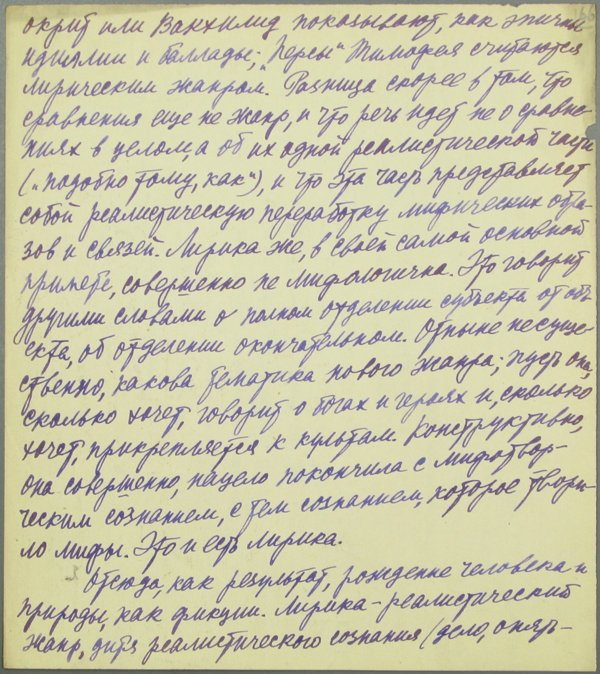 окрит или Вакхилид показывают, как эпичны
идиллии и баллады; „Персы“ Тимофея считаются
лирическим жанром. Разница скорее в том, что
сравнения еще не жанр, и что речь идет не о сравне-
ниях в целом, а об их одной реалистической части
(„подобно тому, как“), и что эта часть представляет
собой реалистическую переработку мифических обра-
зов и связей. Лирика же, в своей самой основной
примете, совершенно не мифологична. Это говорит
другими словами о полном отделении субъекта от объ-
екта, об отделении окончательном. Отныне несуще-
ственно, какова тематика нового жанра; пусть она,
сколько хочет, говорит о богах и героях и, сколько
хочет, прикрепляется к культам. Конструктивно,
она совершенно, нацело покончила с мифотвор-
ческим сознанием, с тем сознанием, которое твори-
ло мифы. Это и есть лирика.
Отсюда, как результат, рождение человека и
природы, как фикции. Лирика - реалистический
жанр, дитя реалистического сознания (дело, опять-